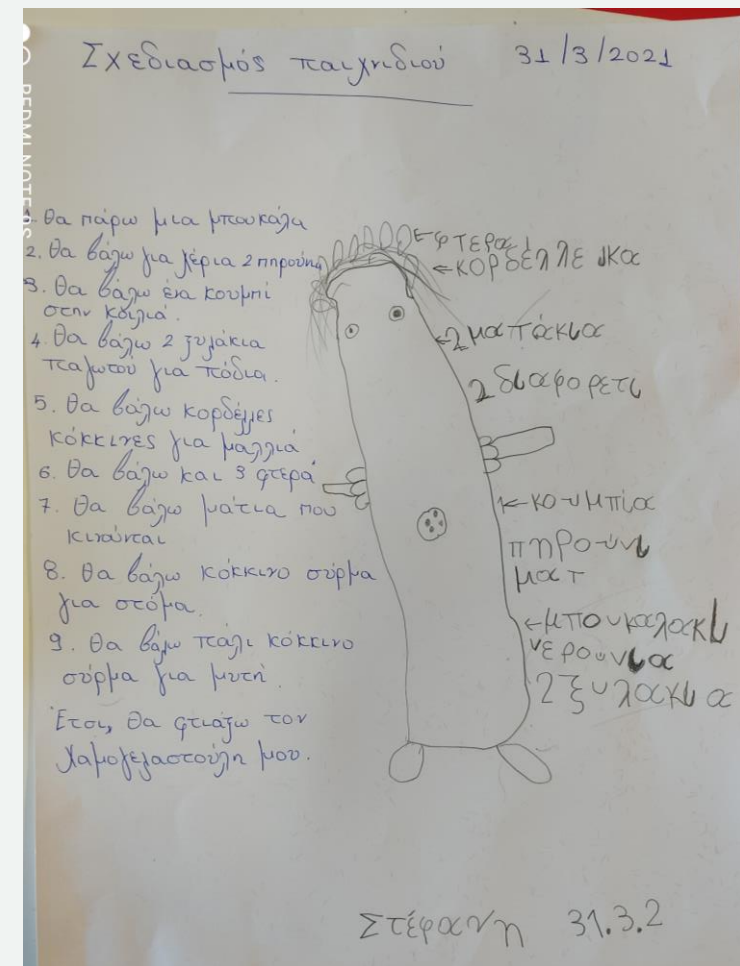 Σχεδιασμός παιχνιδιού 31/3/2021
REDMI NOTE 8
1. Θα πάρω μια μπουκάλα
2. Θα βάλω για χέρια 2 πιρούνια
3. Θα βάλω ένα κουμπί
στην κοιλιά.
4. Θα βάλω 2 ξυλάκια
παγωτού για πόδια.
5. Θα βάλω κορδέλλες
κόκκινες για μαλλιά
6. Θα βάλω και 3 φτερά
7. Θα βάλω μάτια που
κινούνται
8. Θα βάλω κόκκινο σύρμα
για στόμα.
9. Θα βάλω πάλι κόκκινο
σύρμα για μυτη.
Έτσι, θα φτιάξω τον
Χαμογελαστούλη μου.
φτερα
κορδελλε
2 ματάκια
2 διαφορετι
κουμπια
πηρουνι
ματ
μπουκαλακι
νερουνια
2 ξυλακια
Στέφανη 31.3.2